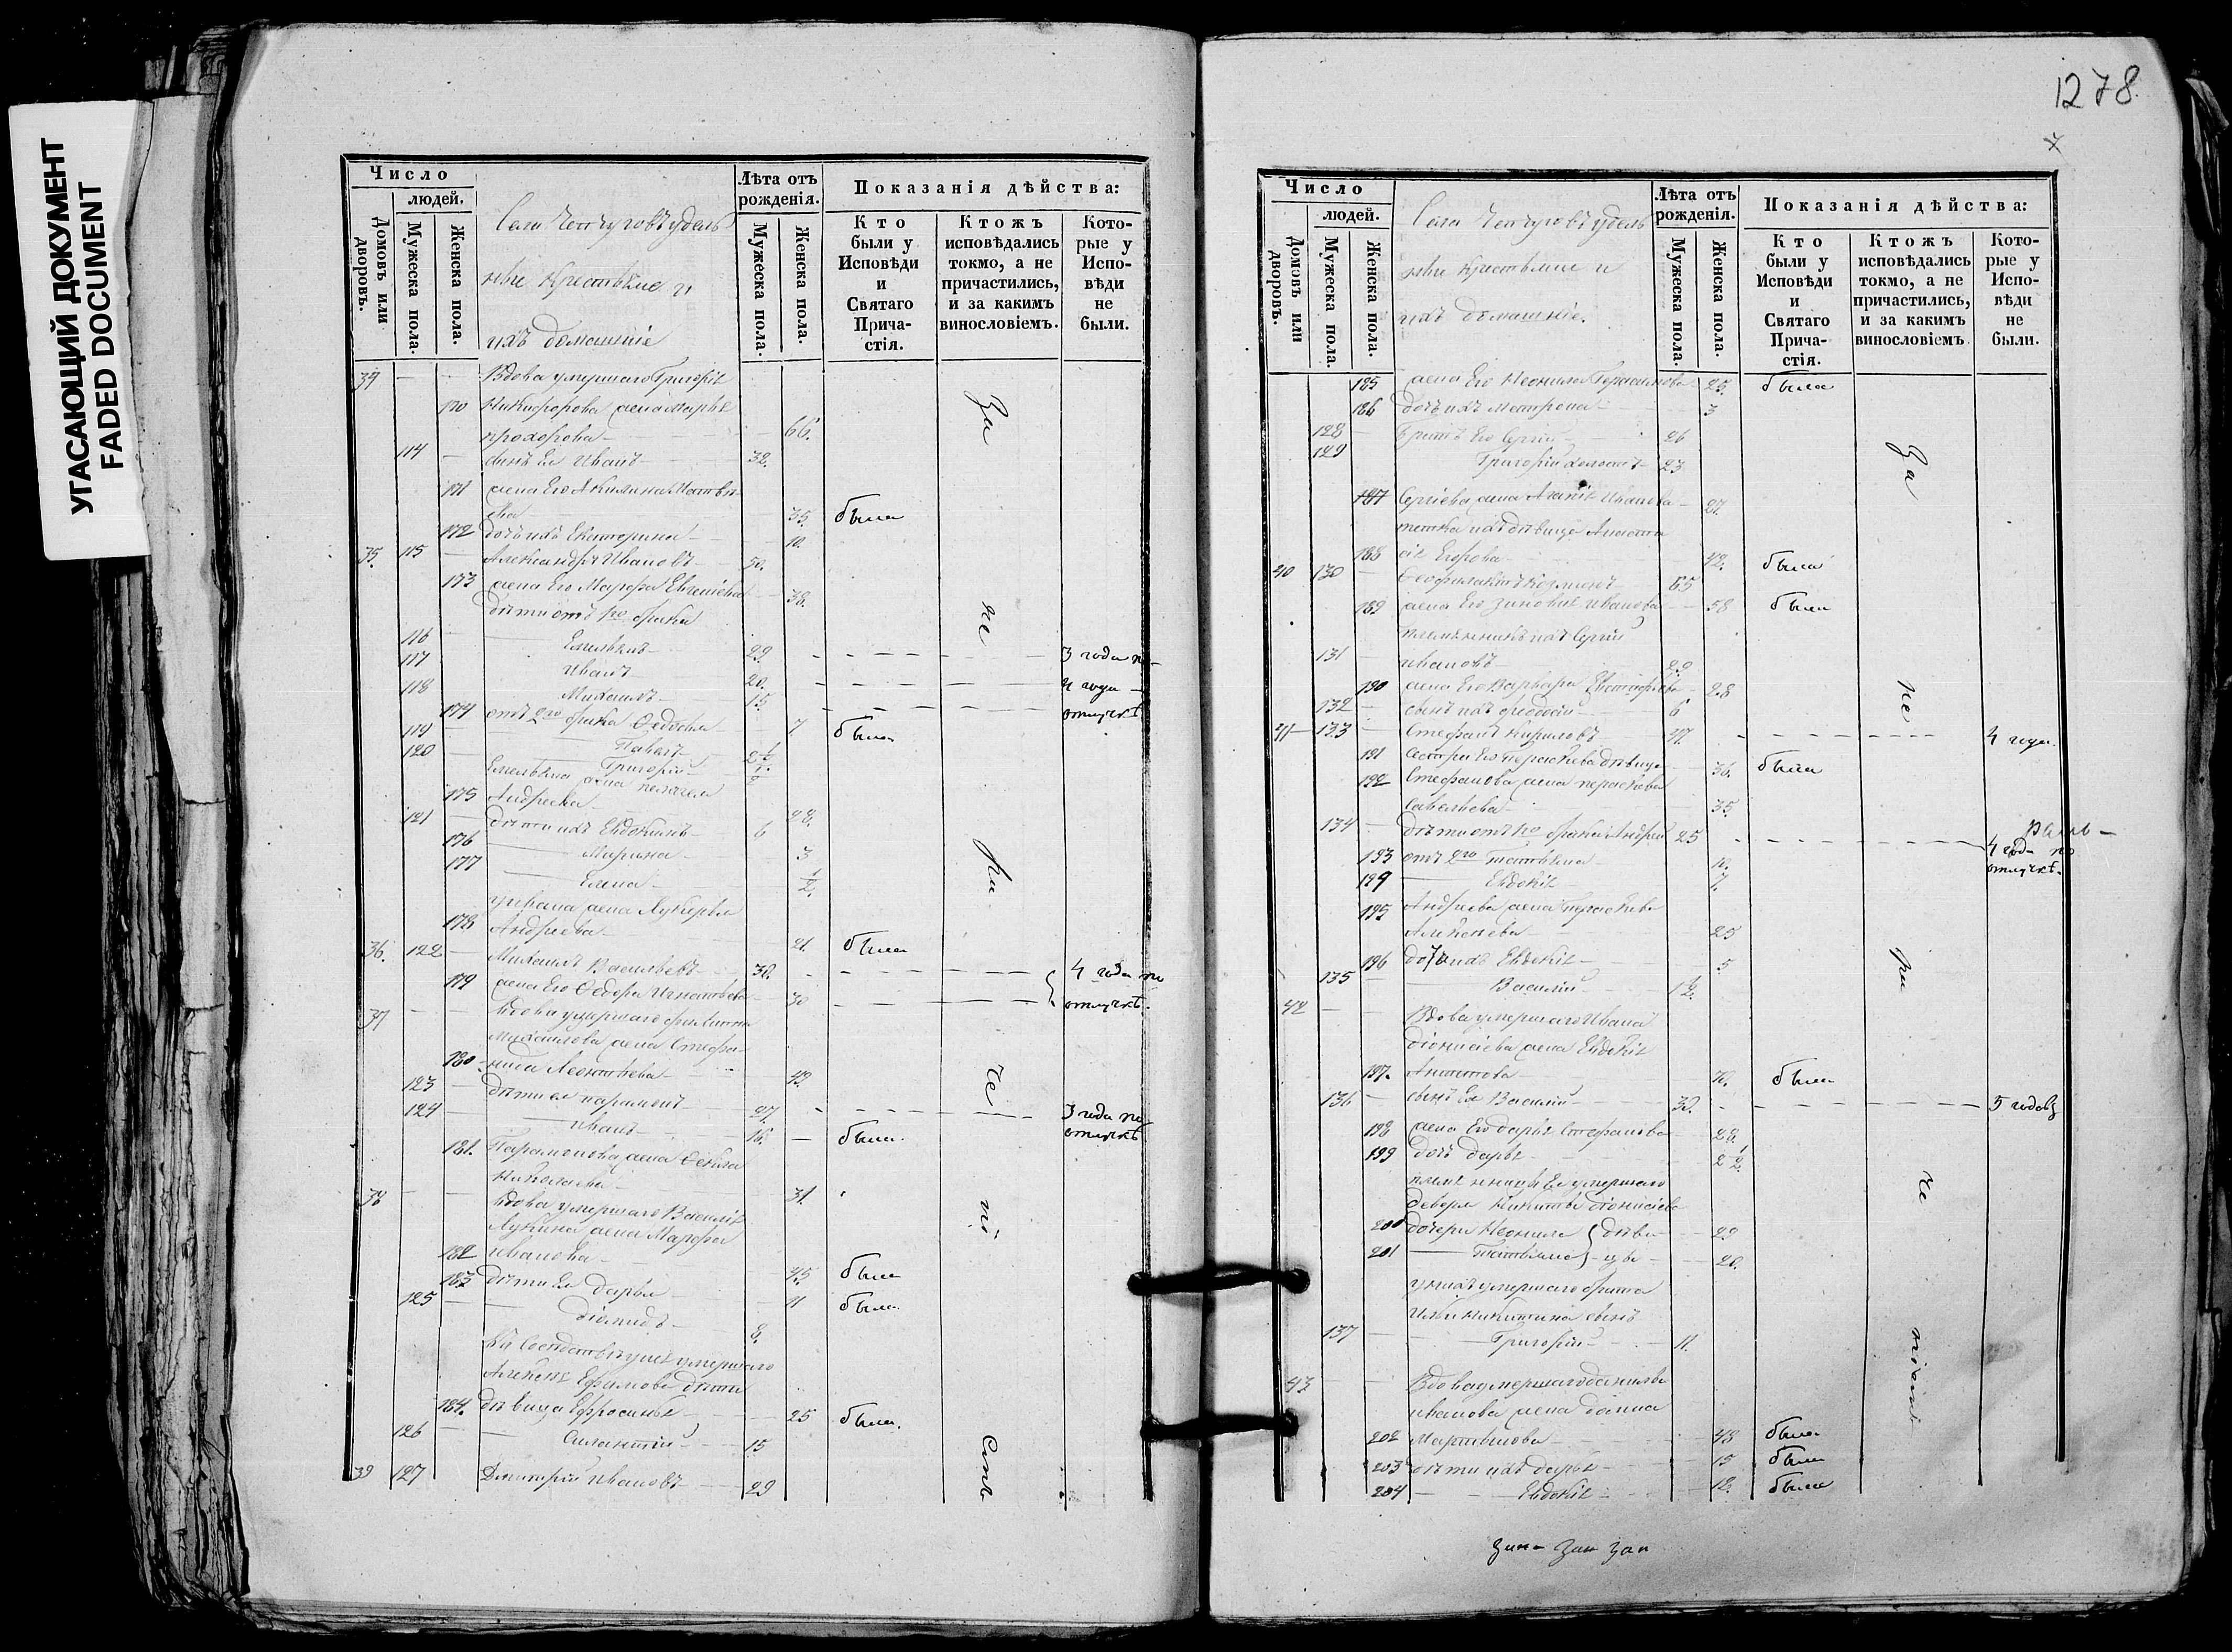 УГАСАЮЩИЙ ДОКУМЕНТ
FADED DOCUMENT
Число
людей.
Домовъ или дворовъ.
Мужеска пола.
Женска пола.
удель
ные крестьяне и
ихъ домашніе
Лѣта отъ рожденія.
Мужеска пола.
Женска пола.
Показанія дѣйства:
Кто были у Исповѣди и Святаго Причастія.
Ктожъ исповѣдались токмо, а не причастились, и за какимъ винословіемъ.
Которые у Исповѣди не были.
34 — — Вдова умершаго Григорія
170 Никифорова жена Марья
Прохорова 66.
114 — сынъ Ея Иванъ 32.
171 жена Его Акилина
35. была
172 дочь ихъ Екатерина 10.
35. 115 — Александръ Ивановъ 50.
173 жена Его Марфа 38.
дѣти отъ 1го брака
116 Емельянъ 29. 3 года по
117 Иванъ 20. 4 года
118 Михаилъ 15. отлучкѣ
174 отъ 2го брака Федосья 7. была
119 Павелъ
120 Григорій
Емельяна жена Пелагея
175 Андреева 28.
121 — дѣти ихъ Евдокимъ 6
176 Марина 3
177 Елена 1/2.
у Ивана жена Лукерья
178 Андреева 21. была
36. 122 — Михаилъ Васильевъ 30. 4 года по
179 жена Его Федора Игнатьева 30 отлучкѣ.
37 — — вдова умершаго Филиппа
Михаилова жена Стефа-
180 нида Леонтьева
123 — дѣти ея Парамонъ 27. 3 года по
124 Иванъ 16. — была. отлучкѣ
181. Парамонова жена Фекла
Николаева 31.
38 — — вдова умершаго Василія
Лукина жена Марфа
182 Иванова 45 была
183 дѣти Ея Дарья 11 была.
125 Діомидъ 8.
умершаго
Алексія Ефимова дѣти
184. дѣвица Ефросинья 25 была.
126 Силантій 15
39 127 Дмитрій Ивановъ 29
За
не
ра
че
ні
емъ
1278
Число
людей.
Домовъ или дворовъ.
Мужеска пола.
Женска пола.
удель
ные крестьяне и
ихъ домашніе.
Лѣта отъ рожденія.
Мужеска пола.
Женска пола.
Показанія дѣйства:
Кто были у Исповѣди и Святаго Причастія.
Ктожъ исповѣдались токмо, а не причастились, и за какимъ винословіемъ
Которые у Исповѣди не были.
185 жена Его Неонила Герасимова 25. была
186 дочь ихъ Матрона 3
128 — братъ Его Сергій 26
129 Григорій холостъ 23
187 Сергіева жена Агафія Иванова 27.
тетка ихъ дѣвица Анаста
188 сія Егорова 42. была
40 130 — Феофилактъ Козминъ 65
189 жена Его Зиновія Иванова 58 была
племянникъ ихъ Сергій
131 — Ивановъ 29
190 жена Его Варвара Евстафіева 28
132 — сынъ ихъ Федосій 6
41 133 — Стефанъ Кириловъ 47. 4 года.
191 сестра Его Параскева дѣвица 36. была
192 Стефанова жена Параскева
Савельева 35.
134 — дѣти отъ 1го брака Андрей 25 4 года по
193 отъ 2го Татьяна 10. отлучкѣ.
194 Евдокія 7.
195 Андреева жена Параскева
Алексѣева 25
196 дочь ихъ Евдокія 5
135 Василій 1 1/2.
42 — — Вдова умершаго Ивана
Діонисіева жена Евдокія
197. Антипова 70. была
136 — сынъ Ея Василій 30. 5 годовъ
198 жена Его Дарья Стефанова 28.
199 дочь Дарья 2 1/2.
племянницы Ея умершаго
деверя Никиты Діонисіева
200 дочери Неонила } дѣви 29
201 Татьяна } цы 20.
у нихъ умершаго брата
Ильи Никитина сынъ
137 Григорій 11.
43 — — Вдова умершаго Данилы
Иванова жена
202 Мартынова 48 была
203 дѣти ихъ Дарья 15 была
204 — — Евдокія 12. была
За
не
ра
че
ніемъ